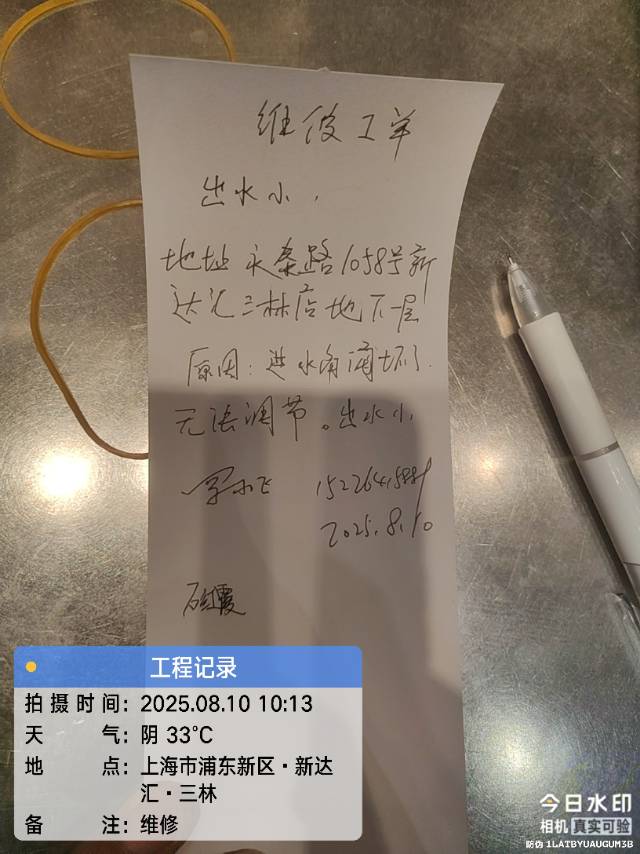 维修工单
出水小，
地址 永泰路1058号新
达汇三林店地下一层
原因：进水角阀坏了.
无法调节。出水小
2025.8.10
工程记录
拍摄时间：2025.08.10 10:13
天气：阴 33℃
地点：上海市浦东新区·新达
汇·三林
备注：维修
今日水印
相机 真实可验
防伪 1LATBYUAUGUM3B